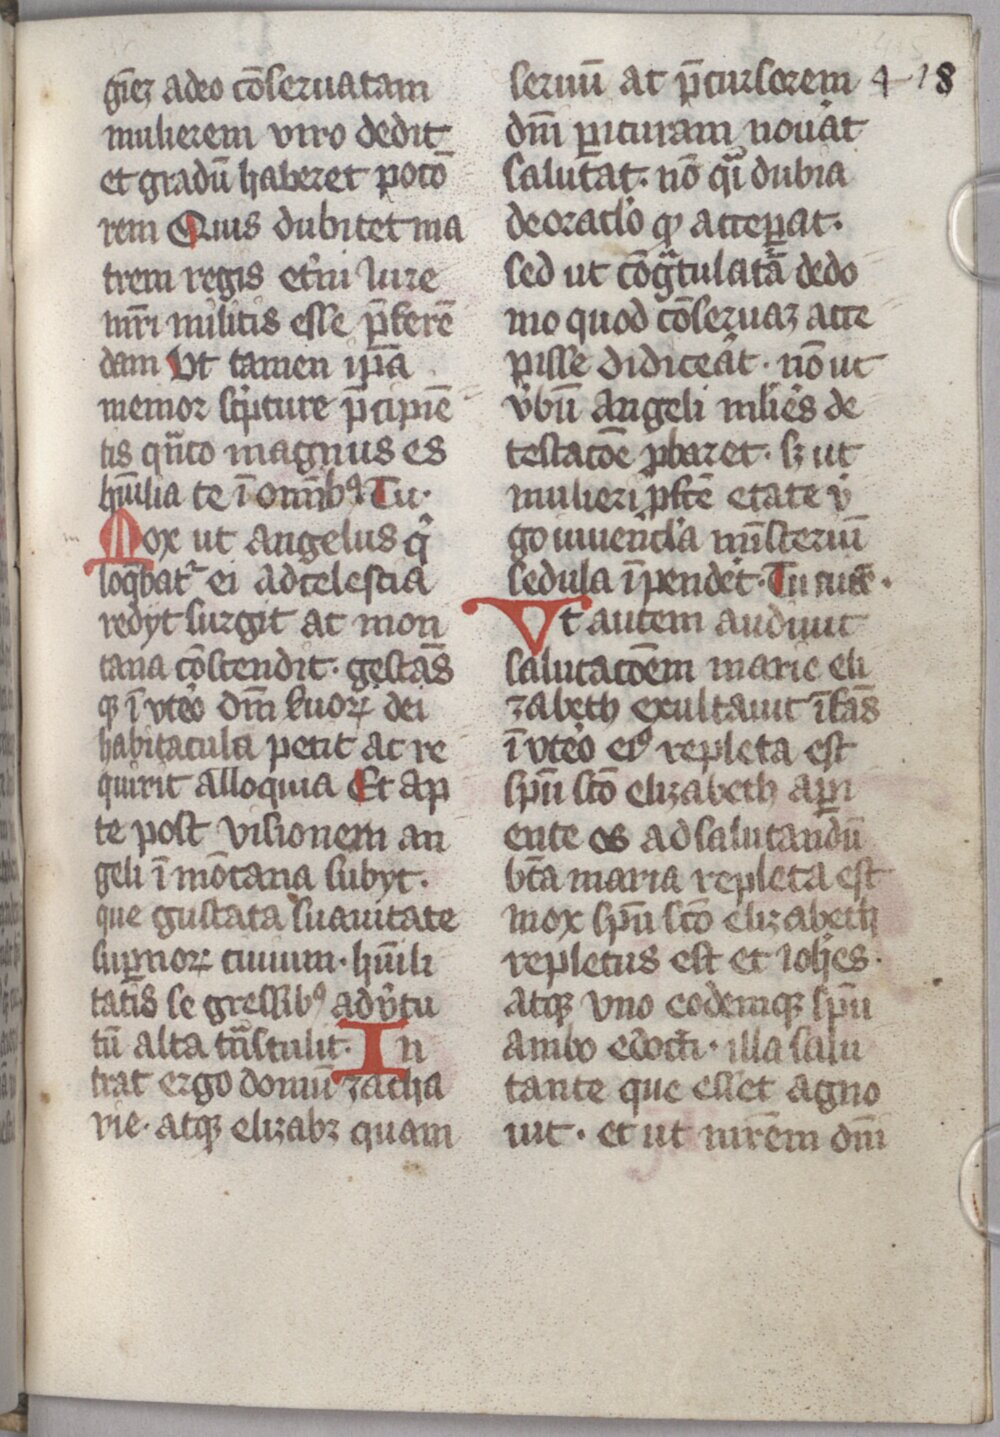 giez adeo cōseruatam
mulierem viro dedit
et gradū haberet pocō
rem Quis dubitet ma
trem regis et̓ni iure
mr̄i militis esse p̄ferē
dam Ut tamen ip̄a
memor sc̓pture p̄cipiē
tis qn̄to magnus es
hūilia te ī om̄ibꝰ Tu·
Mox ut angelus q̇
loq̄bat᷑ ei ad celestia
redyt surgit ac mon
tana cōscendit· gestās
qꝫ ī vte̓o dn̄m suoꝝ dei
habitacula petit ac re
quirit alloquia Et ap
te post visionem an
geli ī mōtana subyt·
que gustata suauitate
suꝑnoꝝ ciuium· hūili
tatis se gressibꝰ ad v̓tu
tū alta tn̄stulit· In
trat ergo domū zacha
rie· atqꝫ elizabꝫ quam
seruū ac p̄cursorem 418
dn̄i ꝑituram nou̓at
salutat· nō qͣi dubia
de orac̓lo qͦ acceꝑat·
sed ut cōgͣtulatā de do
no quod cōseruaꝫ acce
pisse didice̓at· nō ut
v̓bū angeli mli̓es de
testacōe ꝓbaret· sꝫ ut
mulieri ꝓ̄fcē etate v̓
go iuuenc̓la mīsteriū
sedula īpende̓t· Tu aūt·
Vt autem audiuit
salutacōem marie eli
zabeth exultauit īfās
ī vte̓o eiꝰ repleta est
sp̄u sc̄o elizabeth aꝑi
ente os ad salutandū
bt̄a maria repleta est
mox sp̄u sc̄o elizabeth
repletus est et ioh̄es·
atqꝫ vno eodemqꝫ sp̄u
ambo edocti· illa salu
tante que esset agno
uit· et ut mr̄em dn̄i